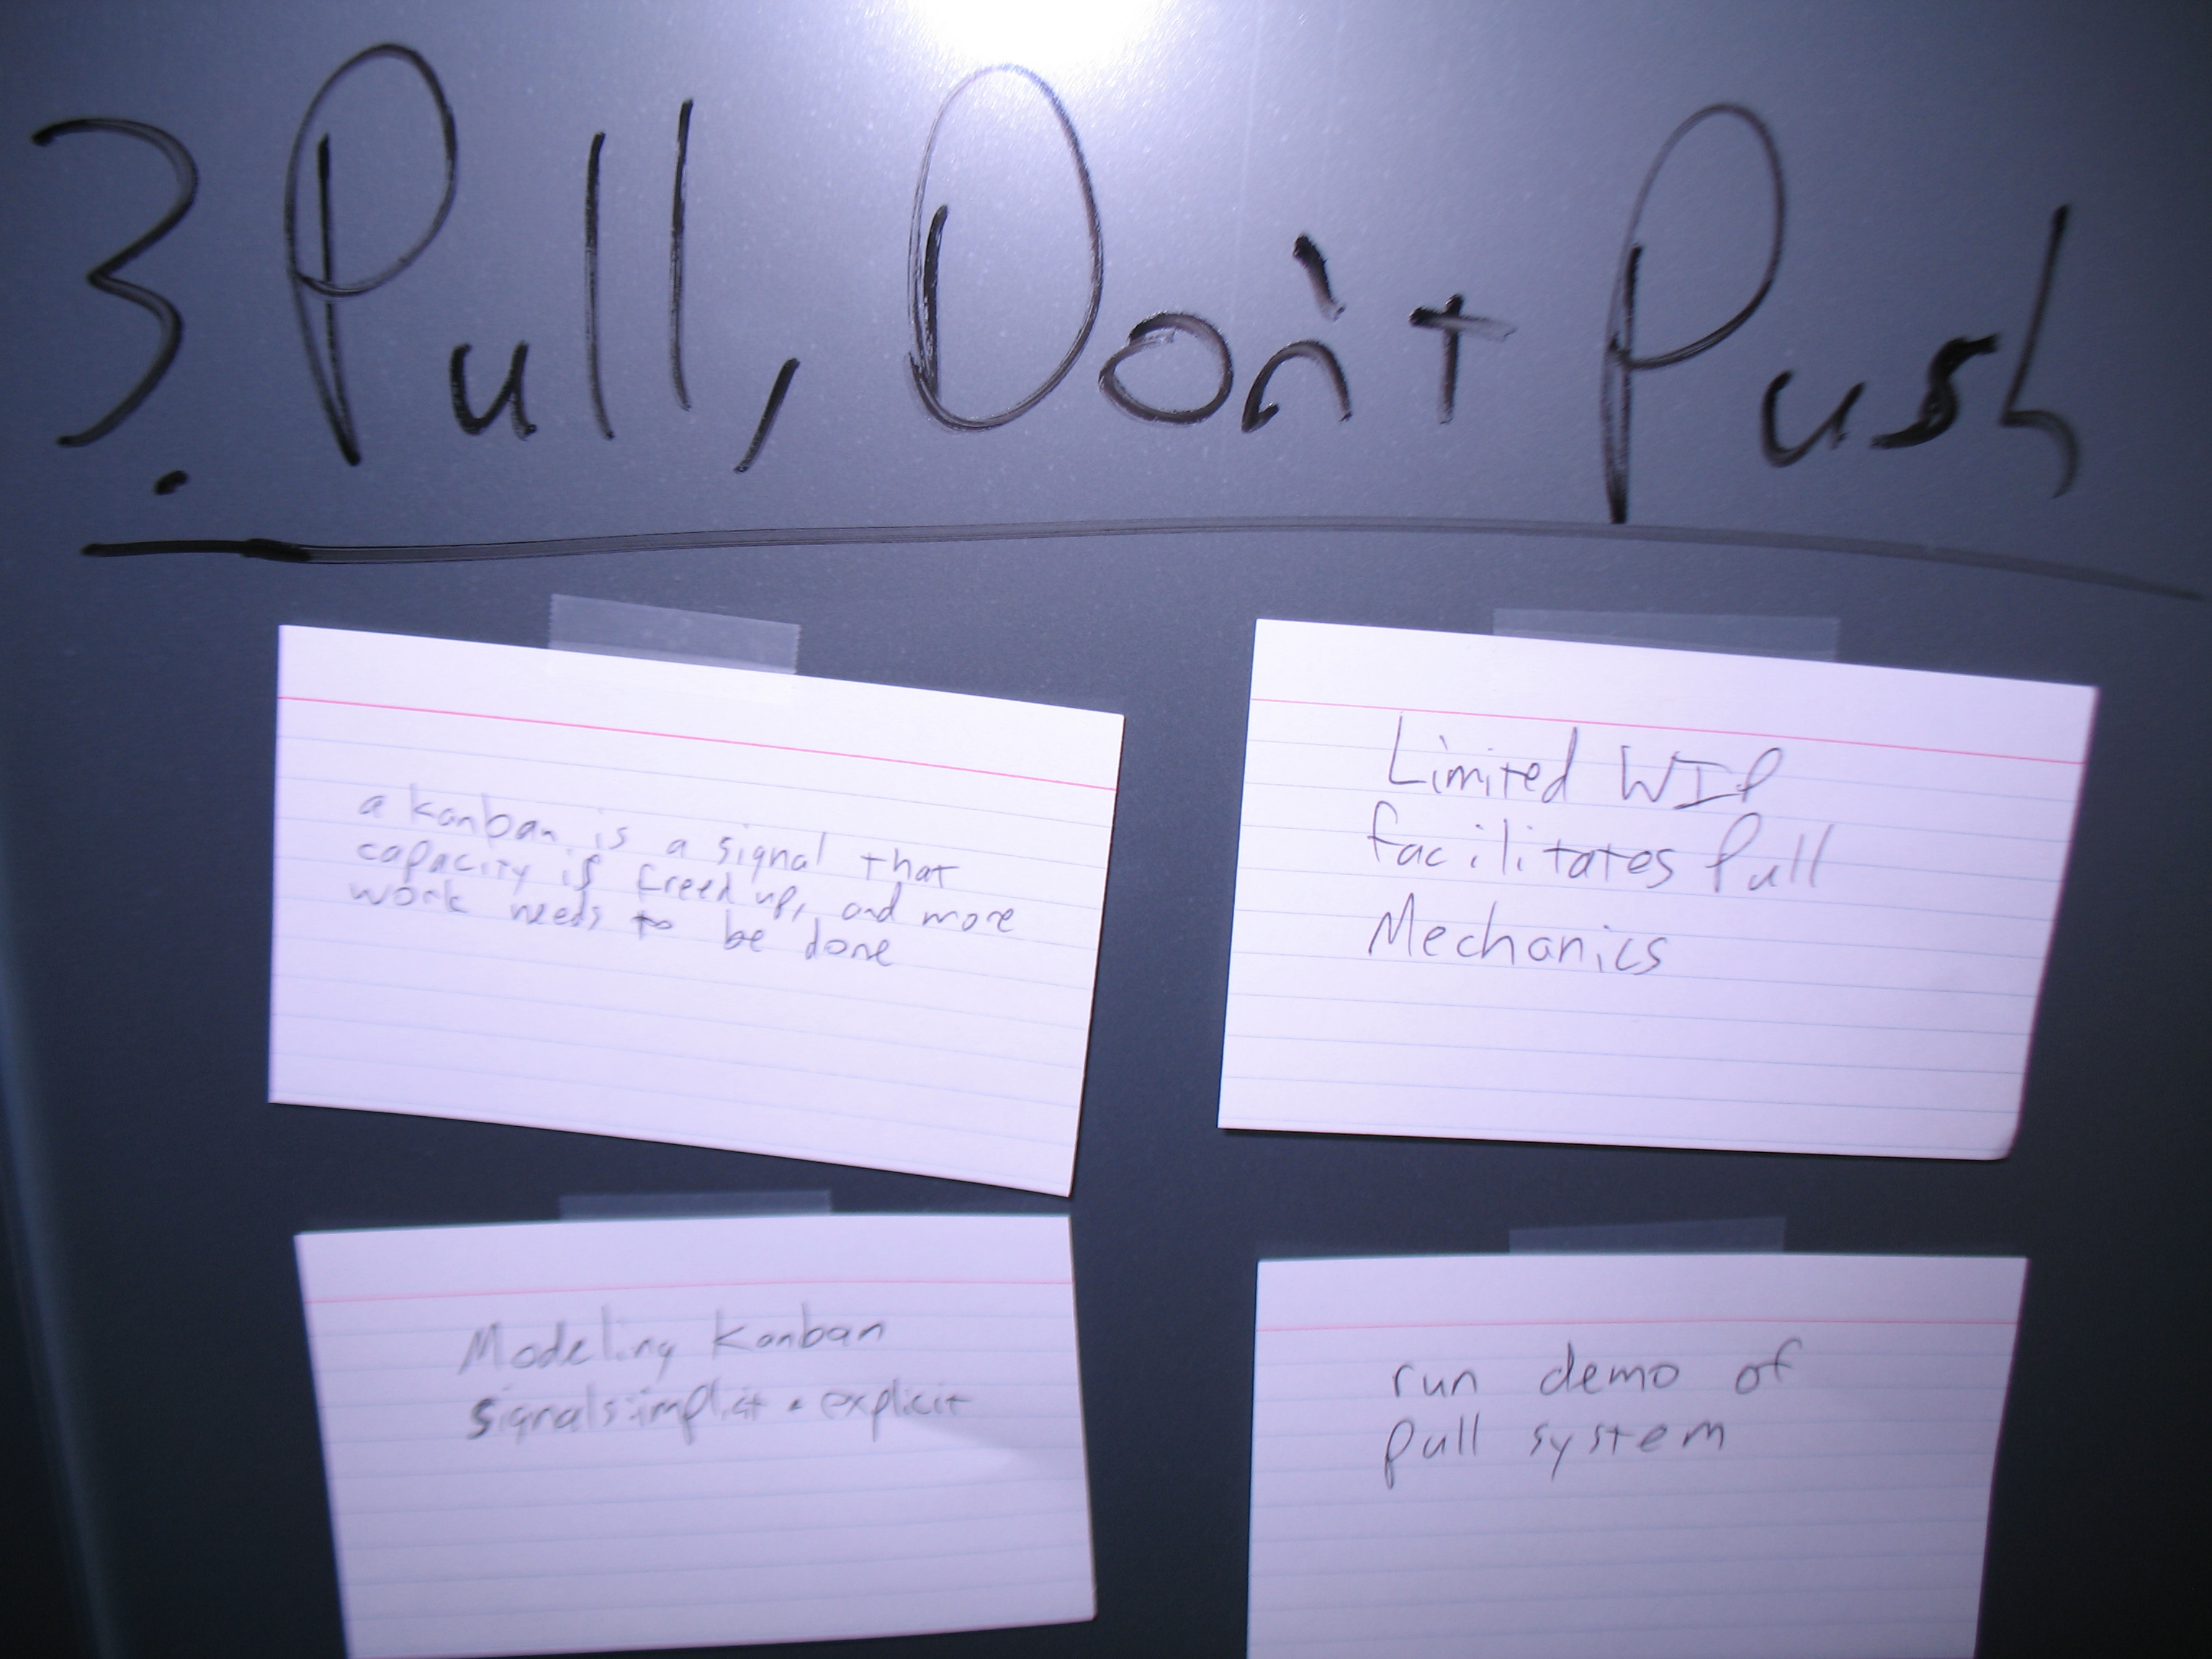 3. Pull, Don't Push
a kanban is a signal that
capacity is freed up, and more
work needs to be done
Limited WIP
facilitates Pull
Mechanics
Modeling Kanban
signals: implicit + explicit
run demo of
pull system